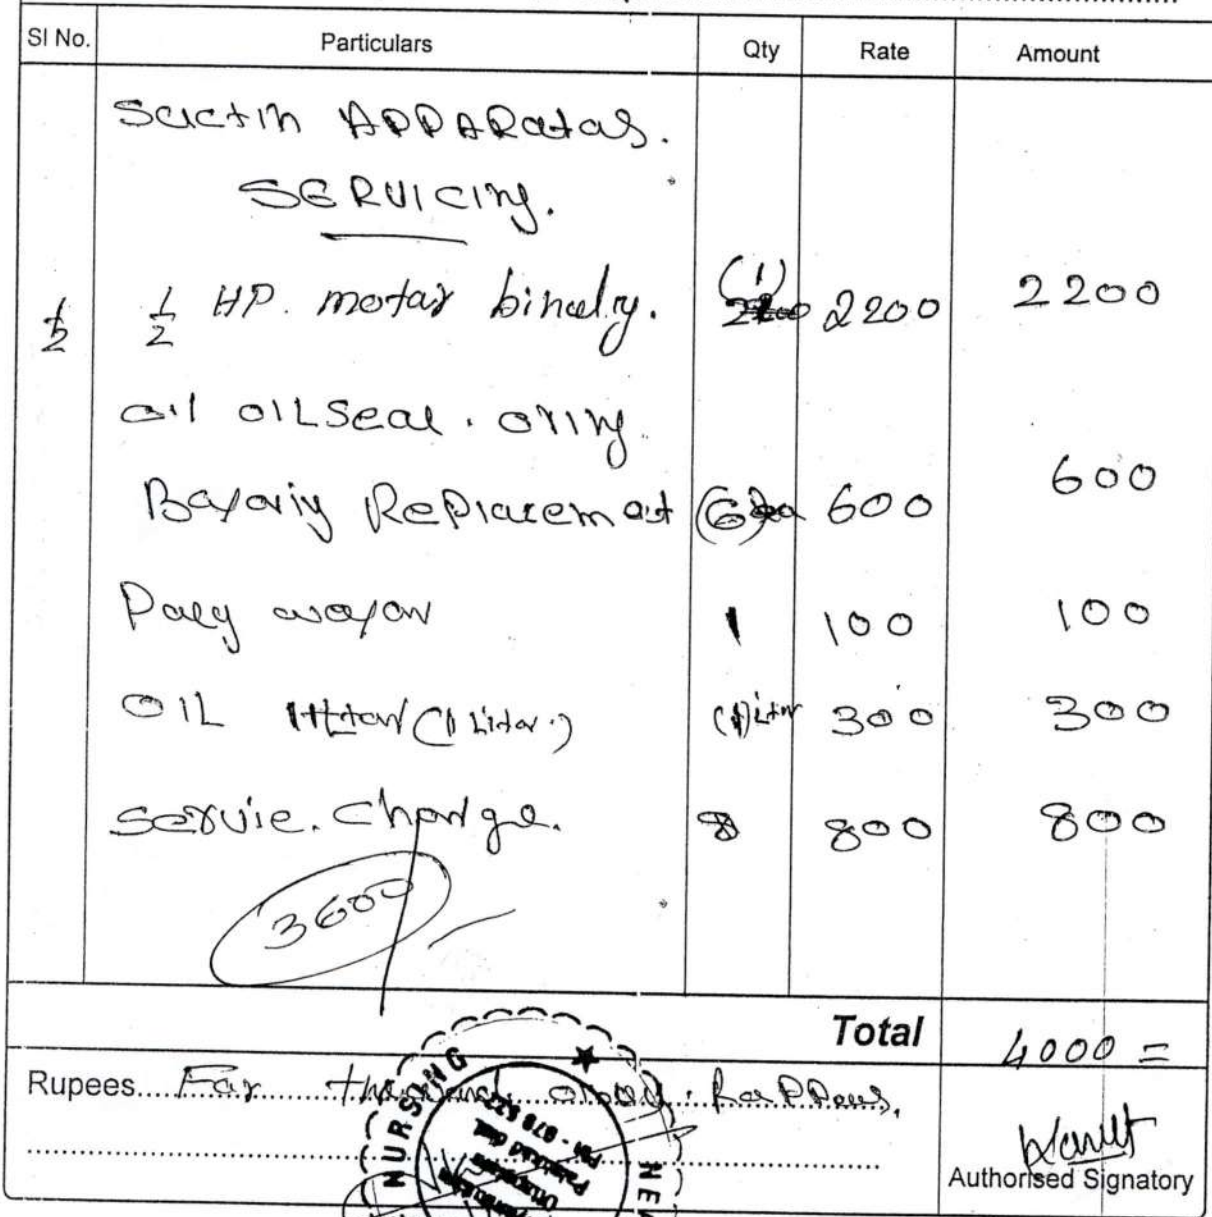 Sl No. Particulars Qty Rate Amount
Suctin APPARatas.
SERVICing.
1/2 1/2 HP. motar binding. (1) 2200 2200
oil OILSeal. oring
Replacement (6) 600 600
Paey 1 100 100
OIL (1 Liter.) (1) Liter 300 300
Servie. Charge. 8 800 800
3600
Total 4000 =
Rupees Far thousand
NURSING
Authorised Signatory